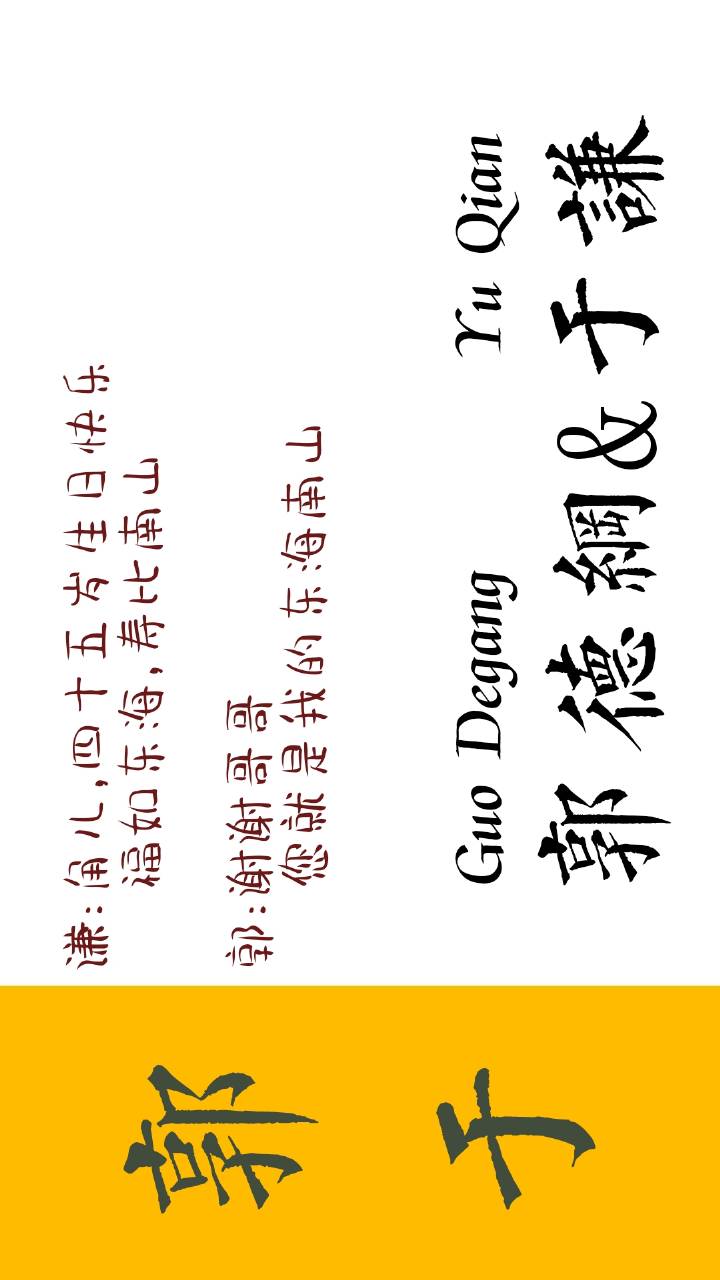 郭
于
谦:角儿,四十五岁生日快乐
福如东海,寿比南山
郭:谢谢哥哥
您就是我的东海南山
Guo Degang Yu Qian
郭德綱&于謙